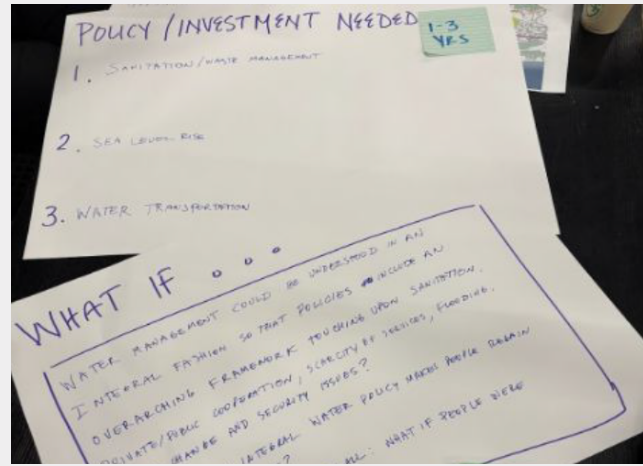 POLICY / INVESTMENT NEEDED
1-3
YRS
1. SANITATION/WASTE MANAGEMENT
2. SEA LEVEL RISE
3. WATER TRANSPORTATION
WHAT IF ...
WATER MANAGEMENT COULD BE UNDERSTOOD IN AN
INTEGRAL FASHION SO THAT POLICIES INCLUDE AN
OVERARCHING FRAMEWORK TOUCHING UPON SANITATION,
PRIVATE/PUBLIC COOPERATION, SCARCITY OF SERVICES, FLOODING,
CHANGE AND SECURITY ISSUES?
INTEGRAL WATER POLICY MAKES PEOPLE REGAIN
?
ALL: WHAT IF PEOPLE WERE